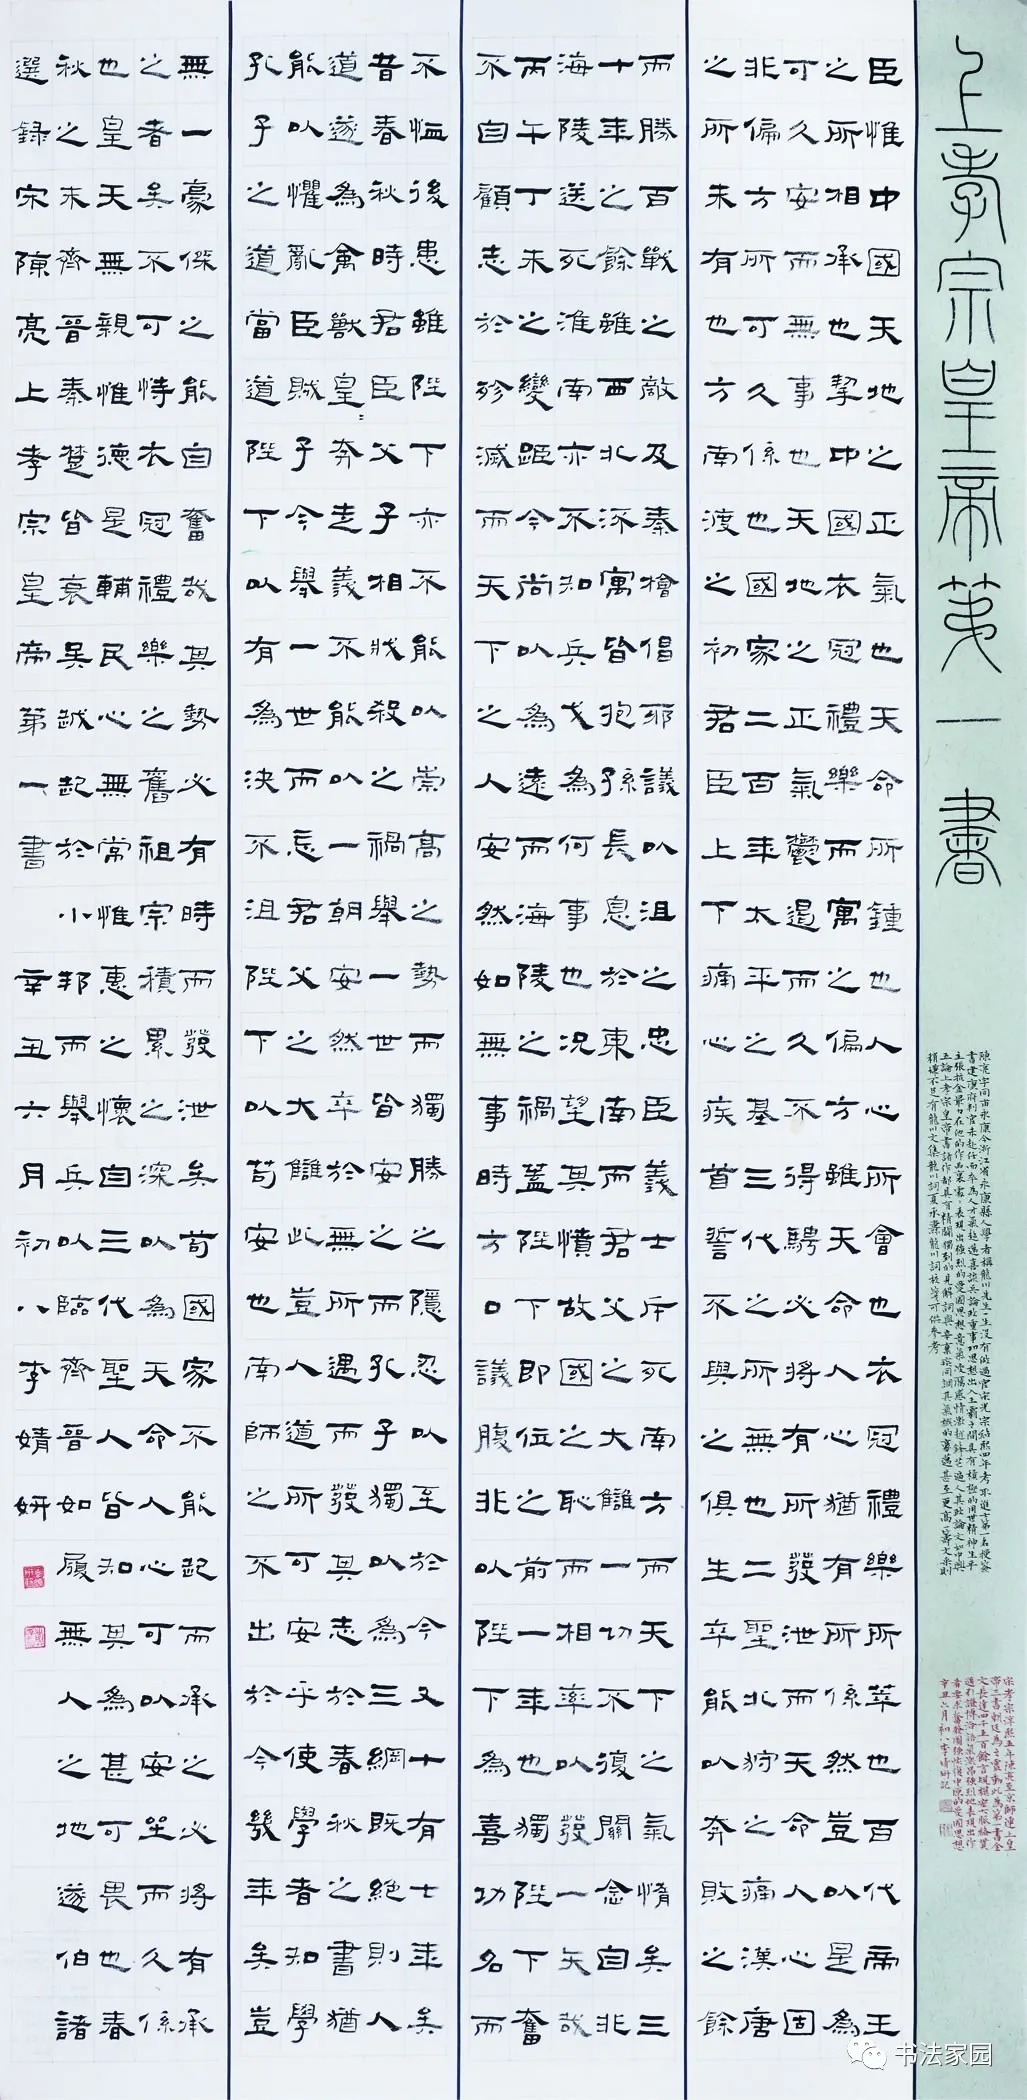 上孝宗皇帝第一書
陳亮字同甫永康今浙江省永康縣人學者稱龍川先生一生沒有做過官宋光宗紹熙四年考取進士第一名授簽
書建康府判官未赴任而卒為人才氣超邁喜談兵論政重事功思想出入王霸之間具有積極的用世精神生平
主張抗金畢力在他的作品裏表現出強烈的愛國思想意氣情感激越鋒芒逼人其政論文如中興
五論上孝宗皇帝書諸作都具有精闢獨到的見解詞與辛棄疾同調其氣概的豪邁甚至更高壽文采則
稍遜不足有龍川文集龍川詞夏承燾龍川詞校箋可供參考
宋孝宗淳熙五年陳亮至京師連上皇
帝三書朝廷為之震動此為第一書全
文長達四千五百餘言
辛丑六月初八李婧妍記
臣惟中國天地之正氣也天命所鍾也人心所會也衣冠禮樂所萃也百代帝王
之所相承也挈中國衣冠禮樂而寓之偏方雖天命人心猶有所係然豈以是為
可久安而無事也天地之正氣鬱遏而久不得騁必將有所發泄而天命人心固
非偏方所可久係也國家二百年太平之基三代之所無也二聖北狩之痛漢唐
之所未有也方南渡之初君臣上下痛心疾首誓不與之俱生卒能以奔敗之餘
而勝百戰之敵及秦檜倡邪議以沮之忠臣義士斥死南方而天下之氣惰矣三
十年之餘雖西北流寓皆抱孫長息於東南而君父之大讎一切不復關念自非
海陵送死淮南亦不知兵戈為何事也況望其憤故國之恥而相率以發一矢哉
丙午丁未之變距今尚以為遠而海陵之禍蓋陛下即位之前一年也獨陛下奮
不自顧志於殄滅而天下之人安然如無事時方口議腹非以陛下為喜功名而
不恤後患雖陛下亦不能以崇高之勢而獨勝之隱忍以至於今又十有七年矣
昔春秋時君臣父子相戕殺之禍舉一世皆安之而孔子獨以為三綱既絕則人
道遂為禽獸皇〻奔走義不能以一朝安然卒於無所遇而發其志於春秋之書猶
能以懼亂臣賊子今舉一世而忘君父之大讎此豈人道所可安乎使學者知學
孔子之道當道陛下以有為決不沮陛下以苟安也南師之不出於今幾年矣豈
無一豪傑之能自奮哉其勢必有時而發泄矣苟國家不能起而承之必將有承
之者矣不可恃衣冠禮樂之舊祖宗積累之深以為天命人心可以安坐而久係
也皇天無親惟德是輔民心無常惟惠之懷自三代聖人皆知其為甚可畏也春
秋之末齊晉秦楚皆衰吳越起於小邦而舉兵以臨齊晉如履無人之地遂伯諸
選錄宋陳亮上孝宗皇帝第一書 辛丑六月初八李婧妍
书法家园